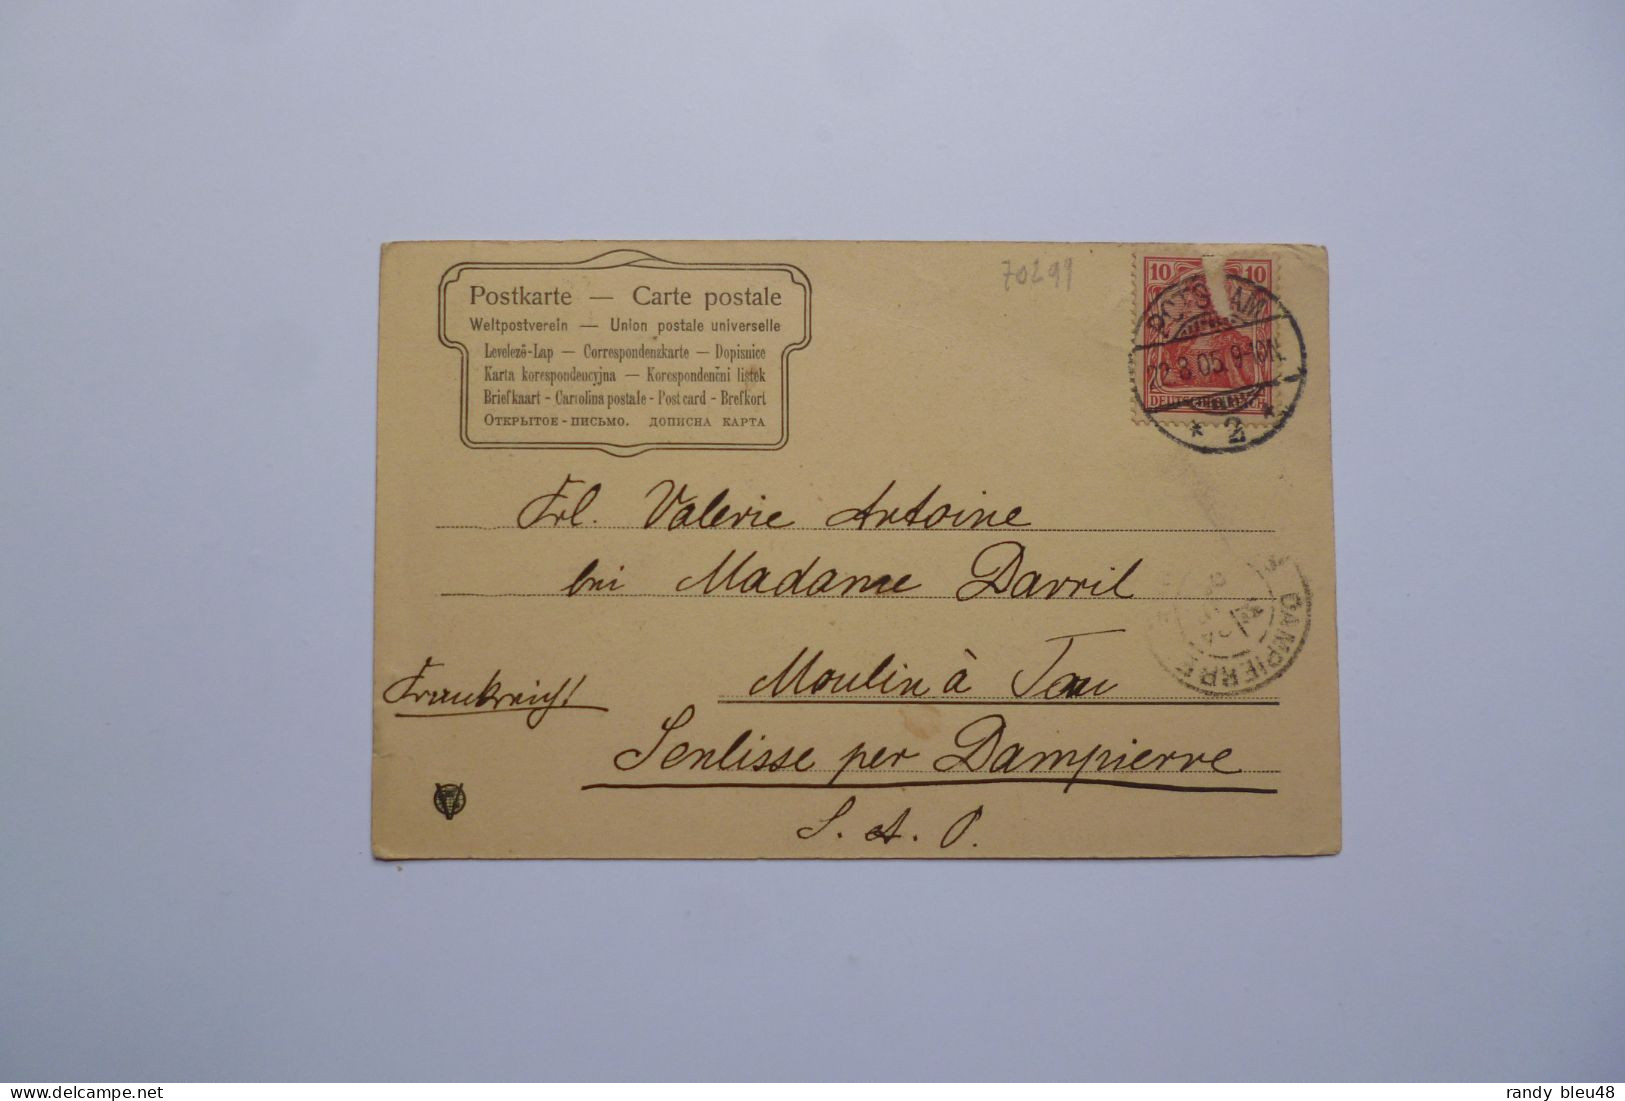 Postkarte — Carte postale
Weltpostverein — Union postale universelle
Levelezö-Lap — Correspondenzkarte — Dopisnice
Karta korespondencyjna — Korespondenční listek
Briefkaart - Cartolina postale - Post card - Brefkort
Открытое - письмо. дописна карта
70299
10 10
POTSDAM
22.8.05. 9-10N.
DEUTSCHES REICH
* 2 *
Frl. Valerie Antoine
bei Madame Davril
DAMPIERRE
Moulin à Tau
Frankreich!
Senlisse per Dampierre
S. A. O.
randy bleu48